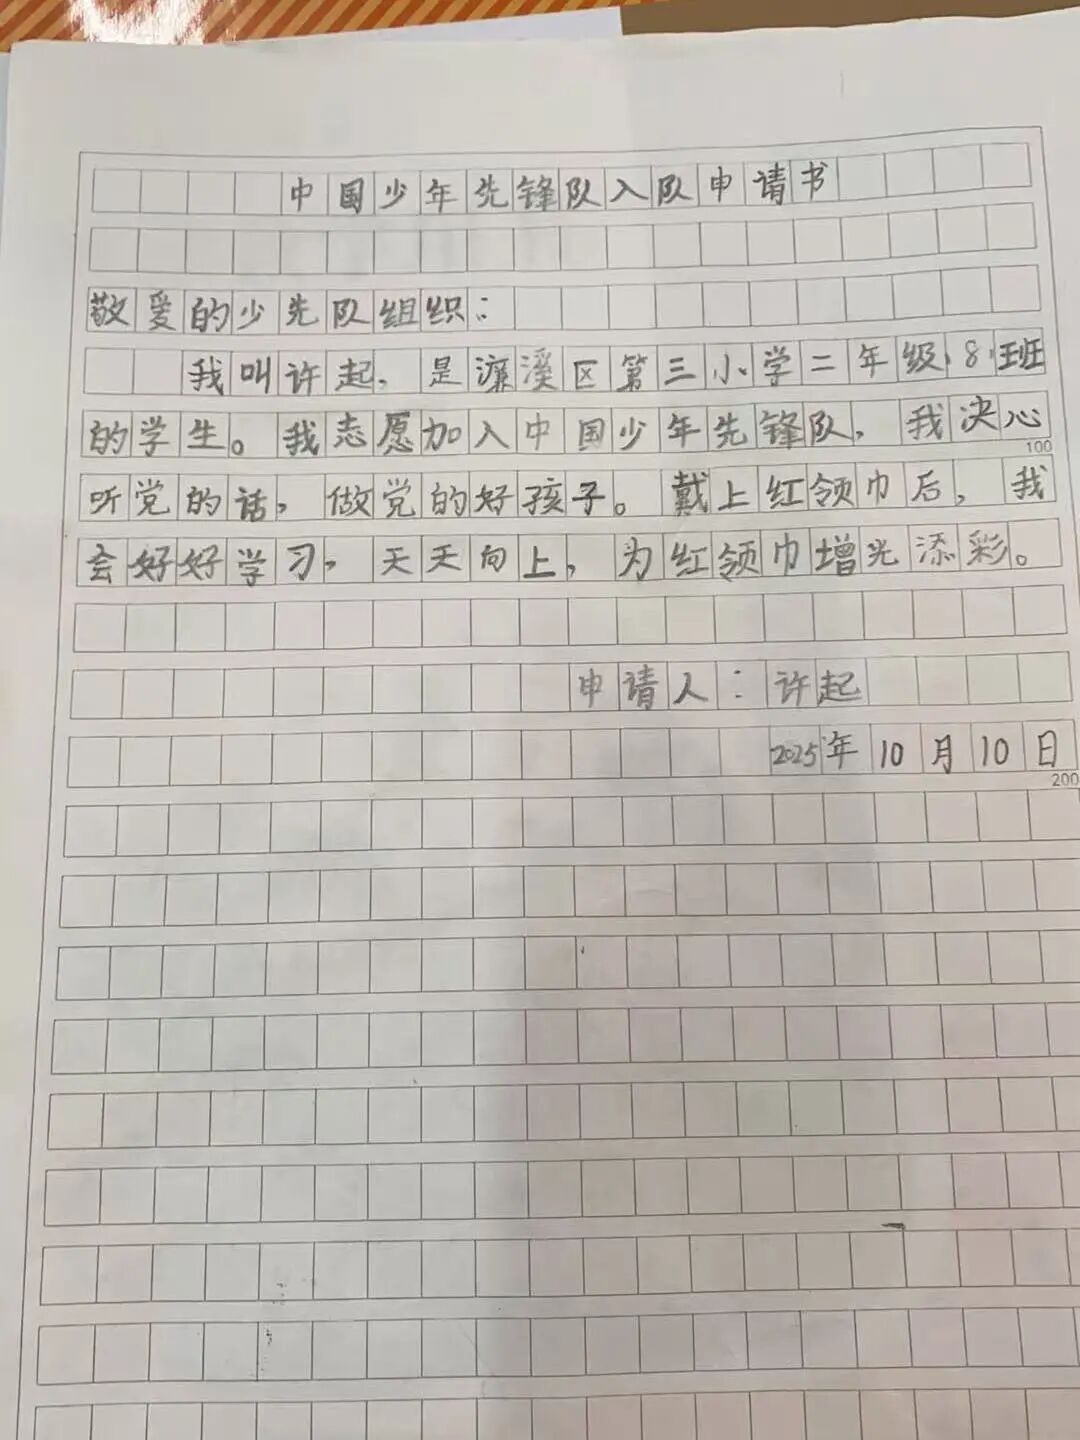 中国少年先锋队入队申请书
敬爱的少先队组织：
我叫许起，是濂溪区第三小学二年级8班
的学生。我志愿加入中国少年先锋队，我决心
100
听党的话，做党的好孩子。戴上红领巾后，我
会好好学习，天天向上，为红领巾增光添彩。
申请人：许起
2025年10月10日
200